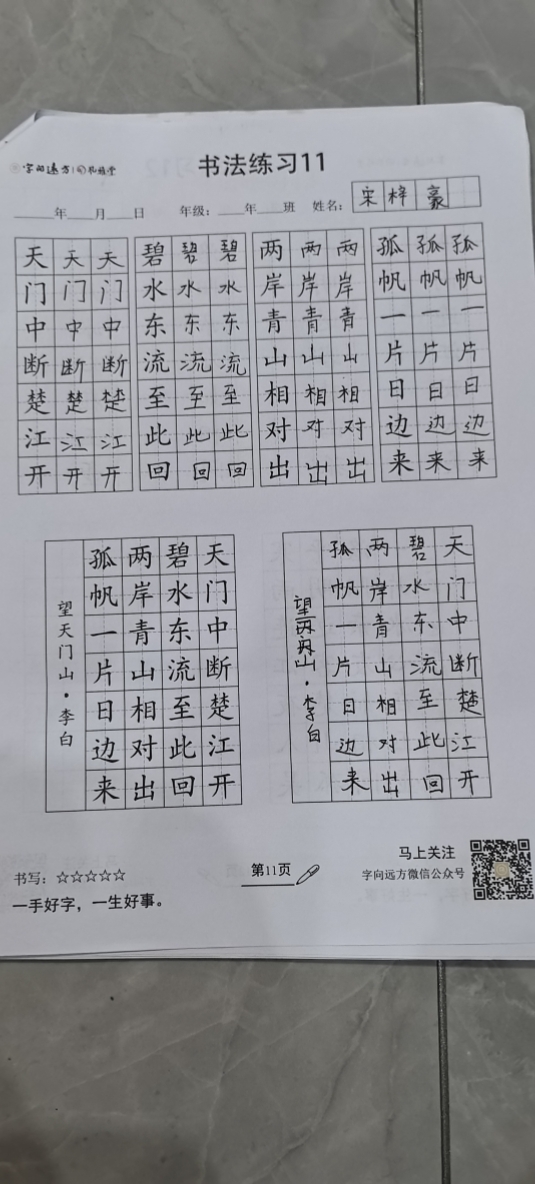 书法练习11
年 月 日 年级: 年 班 姓名: 宋梓豪
天天天 碧碧碧 两两两 孤孤孤
门门门 水水水 岸岸岸 帆帆帆
中中中 东东东 青青青 一一一
断断断 流流流 山山山 片片片
楚楚楚 至至至 相相相 日日日
江江江 此此此 对对对 边边边
开开开 回回回 出出出 来来来
望天门山·李白
天门中断楚江开
碧水东流至此回
两岸青山相对出
孤帆一片日边来
望
山·李白
天门中断楚江开
碧水东流至此回
两岸青山相对出
孤帆一片日边来
书写: ☆☆☆☆☆
一手好字，一生好事。
第11页
马上关注
字向远方微信公众号